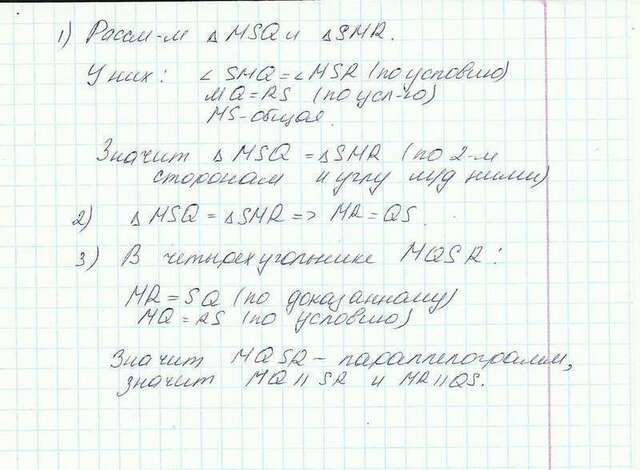 1) Рассм-м △ MSQ и △SMR.
У них: ∠ SMQ = ∠ MSR (по условию)
MQ = RS (по усл-ю)
MS - общая.
Значит △ MSQ = △SMR (по 2-м
сторонам и углу м/д ними)
2) △ MSQ = △SMR => MR = QS.
3) В четырехугольнике MQSR:
MR = SQ (по доказанному)
MQ = RS (по условию)
Значит MQSR - параллелограмм,
значит MQ || SR и MR || QS.